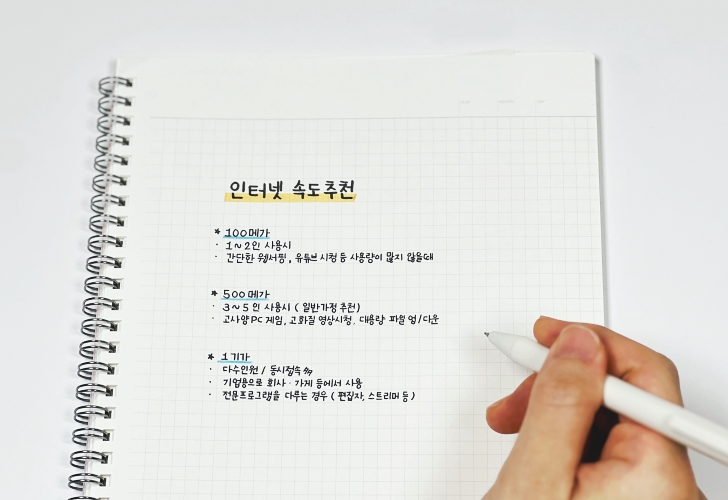 인터넷 속도추천
* 100메가
· 1~2인 사용시
· 간단한 웹서핑, 유튜브 시청 등 사용량이 많지 않을때
* 500메가
· 3~5인 사용시 (일반가정 추천)
· 고사양PC게임, 고화질 영상시청, 대용량 파일 업/다운
* 1기가
· 다수인원 / 동시접속
· 기업용으로 회사 · 가게 등에서 사용
· 전문프로그램을 다루는 경우 (편집자, 스트리머 등)